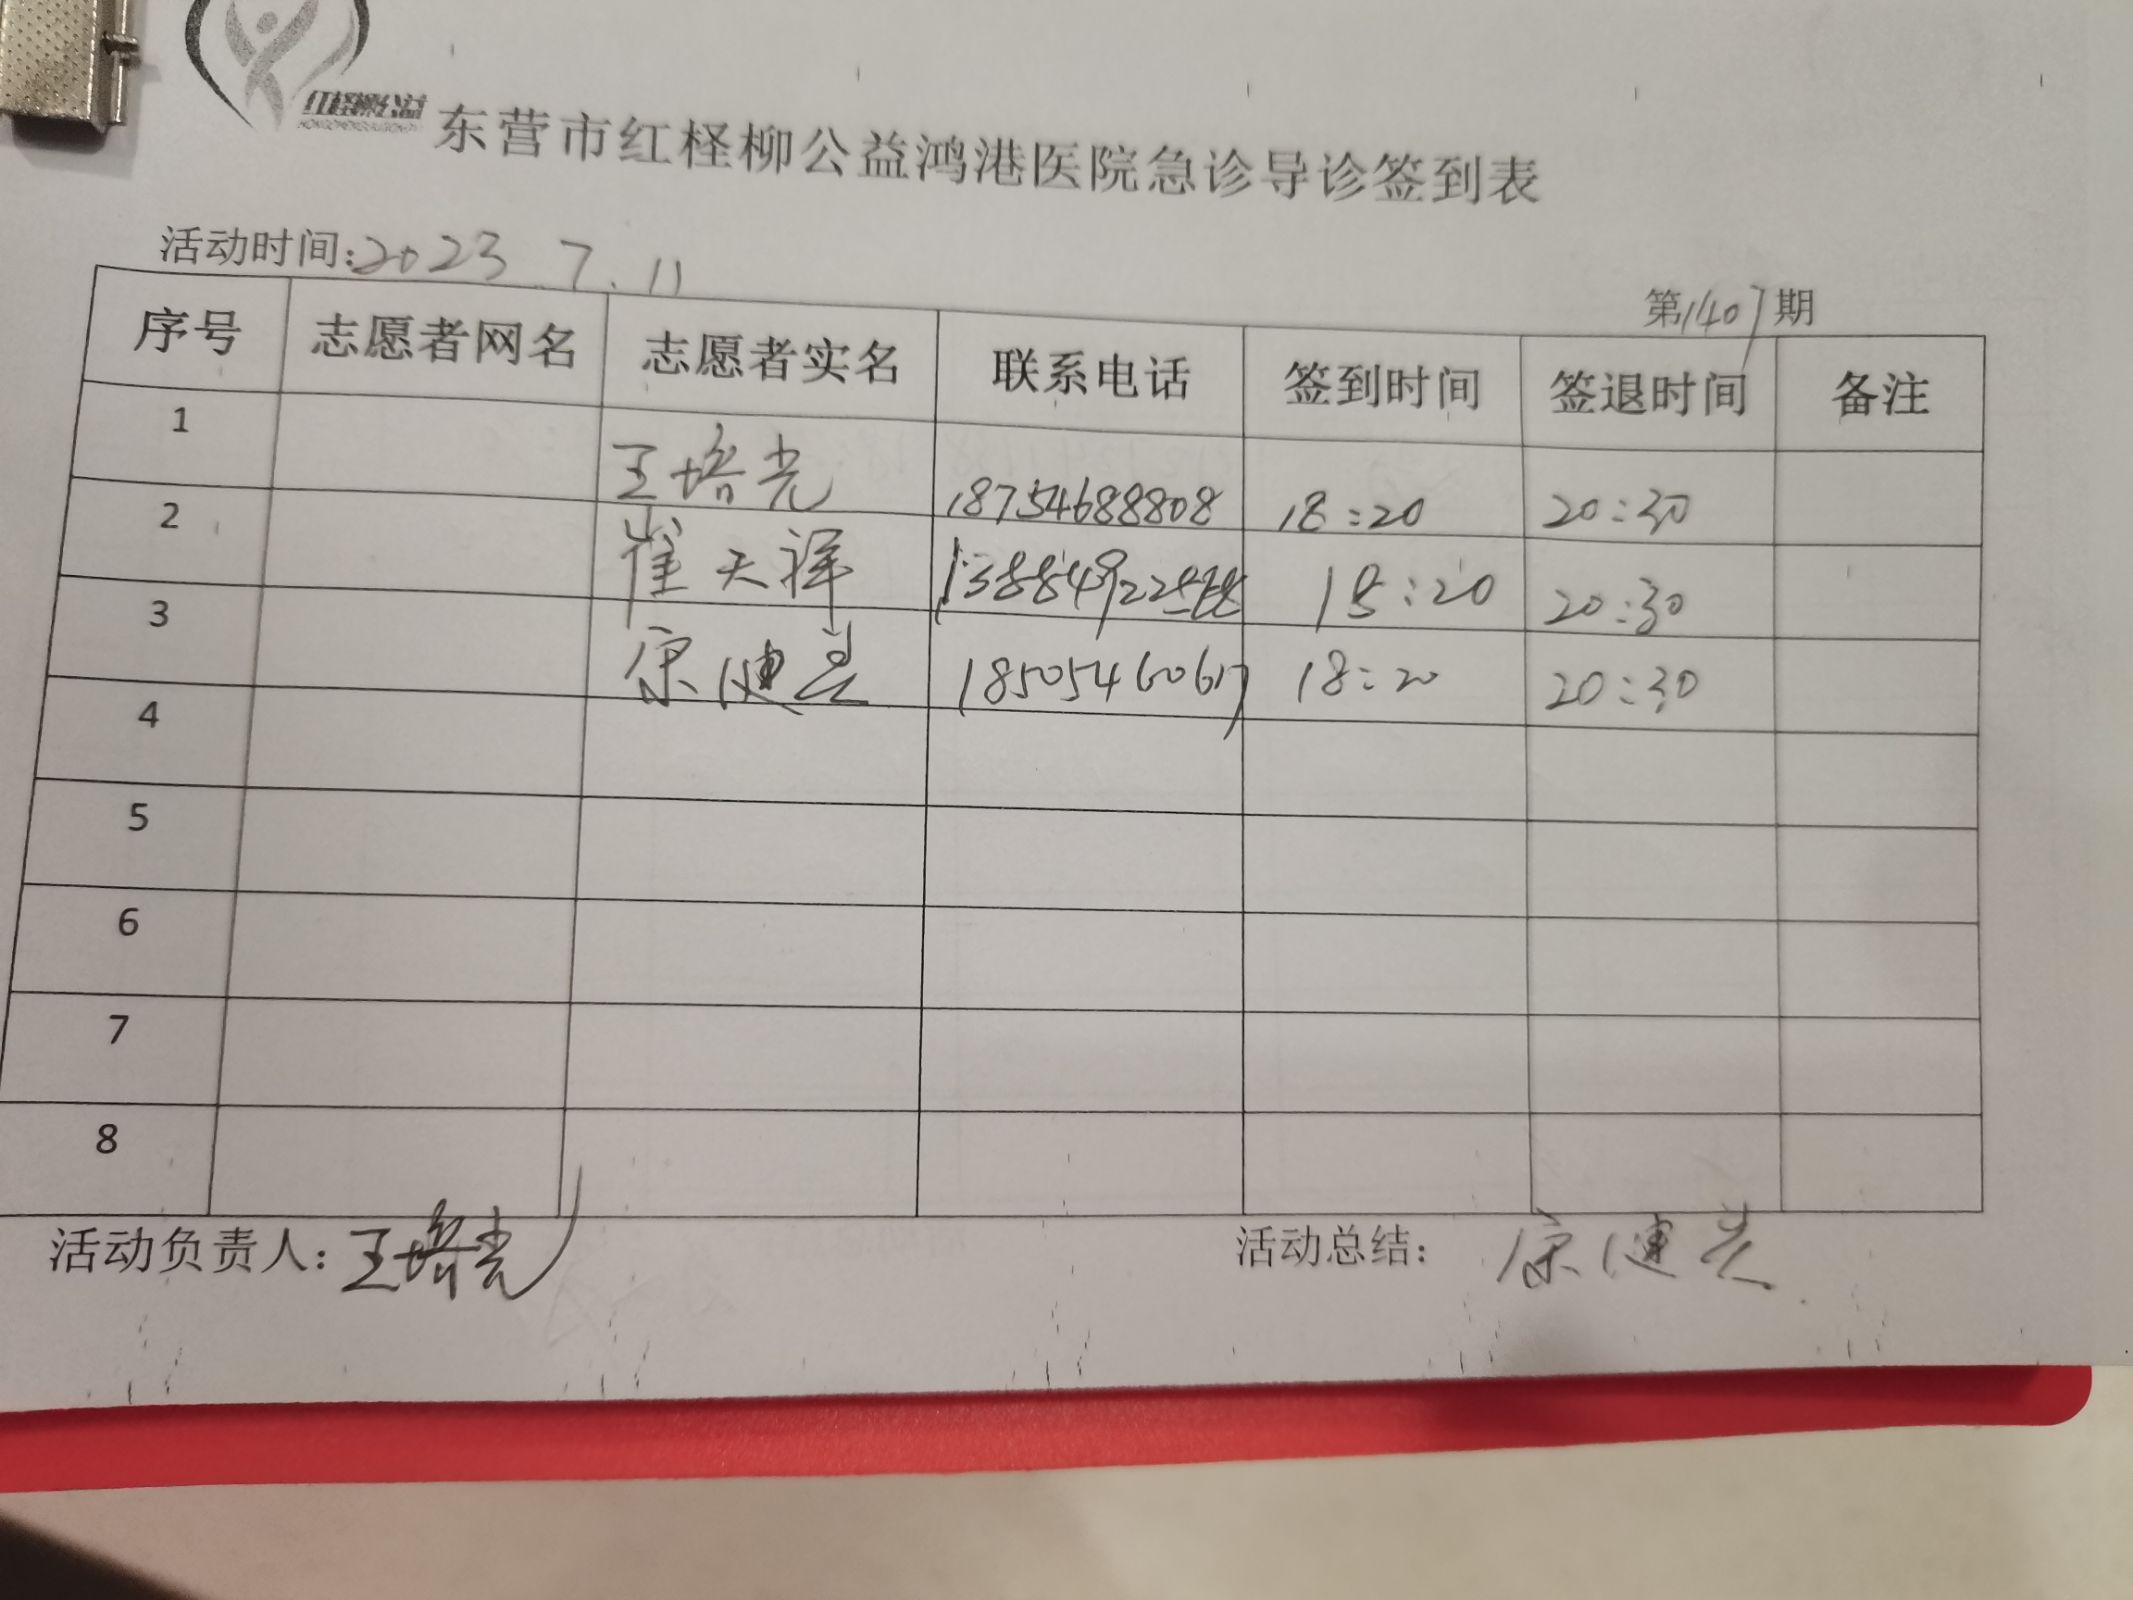 红柽柳公益
东营市红柽柳公益鸿港医院急诊导诊签到表
活动时间:2023.7.11
第1407期
序号 志愿者网名 志愿者实名 联系电话 签到时间 签退时间 备注
1 王培光 18754688808 18:20 20:30
2 崔天祥 18:20 20:30
3 康健美 18505460617 18:20 20:30
4
5
6
7
8
活动负责人:王培光 活动总结: 康健美